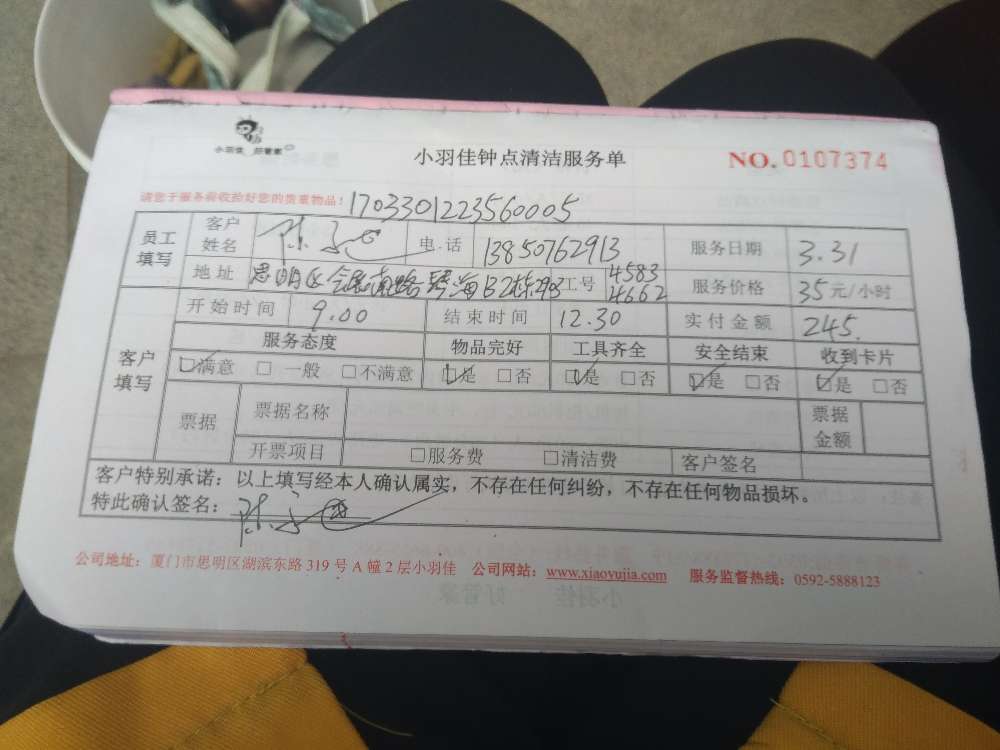 小羽佳 好管家
小羽佳钟点清洁服务单
NO. 0107374
请您于服务前收拾好您的贵重物品！ 1703301223560005
员工填写 客户姓名 陈 电话 13850762913 服务日期 3.31
地址 思明区 南路 海B2栋 工号 4583 4662 服务价格 35元/小时
客户填写 开始时间 9.00 结束时间 12.30 实付金额 245.
服务态度 物品完好 工具齐全 安全结束 收到卡片
☑满意 □一般 □不满意 ☑是 □否 ☑是 □否 ☑是 □否 ☑是 □否
票据 票据名称 票据金额
开票项目 □服务费 □清洁费 客户签名
客户特别承诺：以上填写经本人确认属实，不存在任何纠纷，不存在任何物品损坏。
特此确认签名： 陈
公司地址：厦门市思明区湖滨东路 319 号 A 幢 2 层小羽佳 公司网站：www.xiaoyujia.com 服务监督热线：0592-5888123